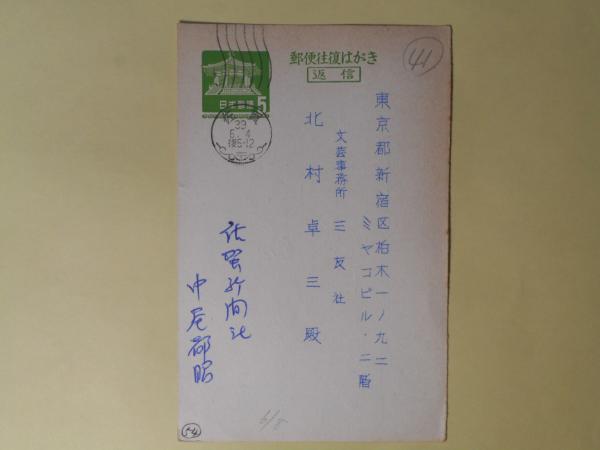 41
郵便往復はがき
返信
日本郵便 5
佐賀
39
6.4
後6-12
東京都新宿区柏木一ノ九二
ミヤコビル・二階
文芸事務所 三友社
北村卓三殿
佐賀新聞社
中尾都昭
6/8
54